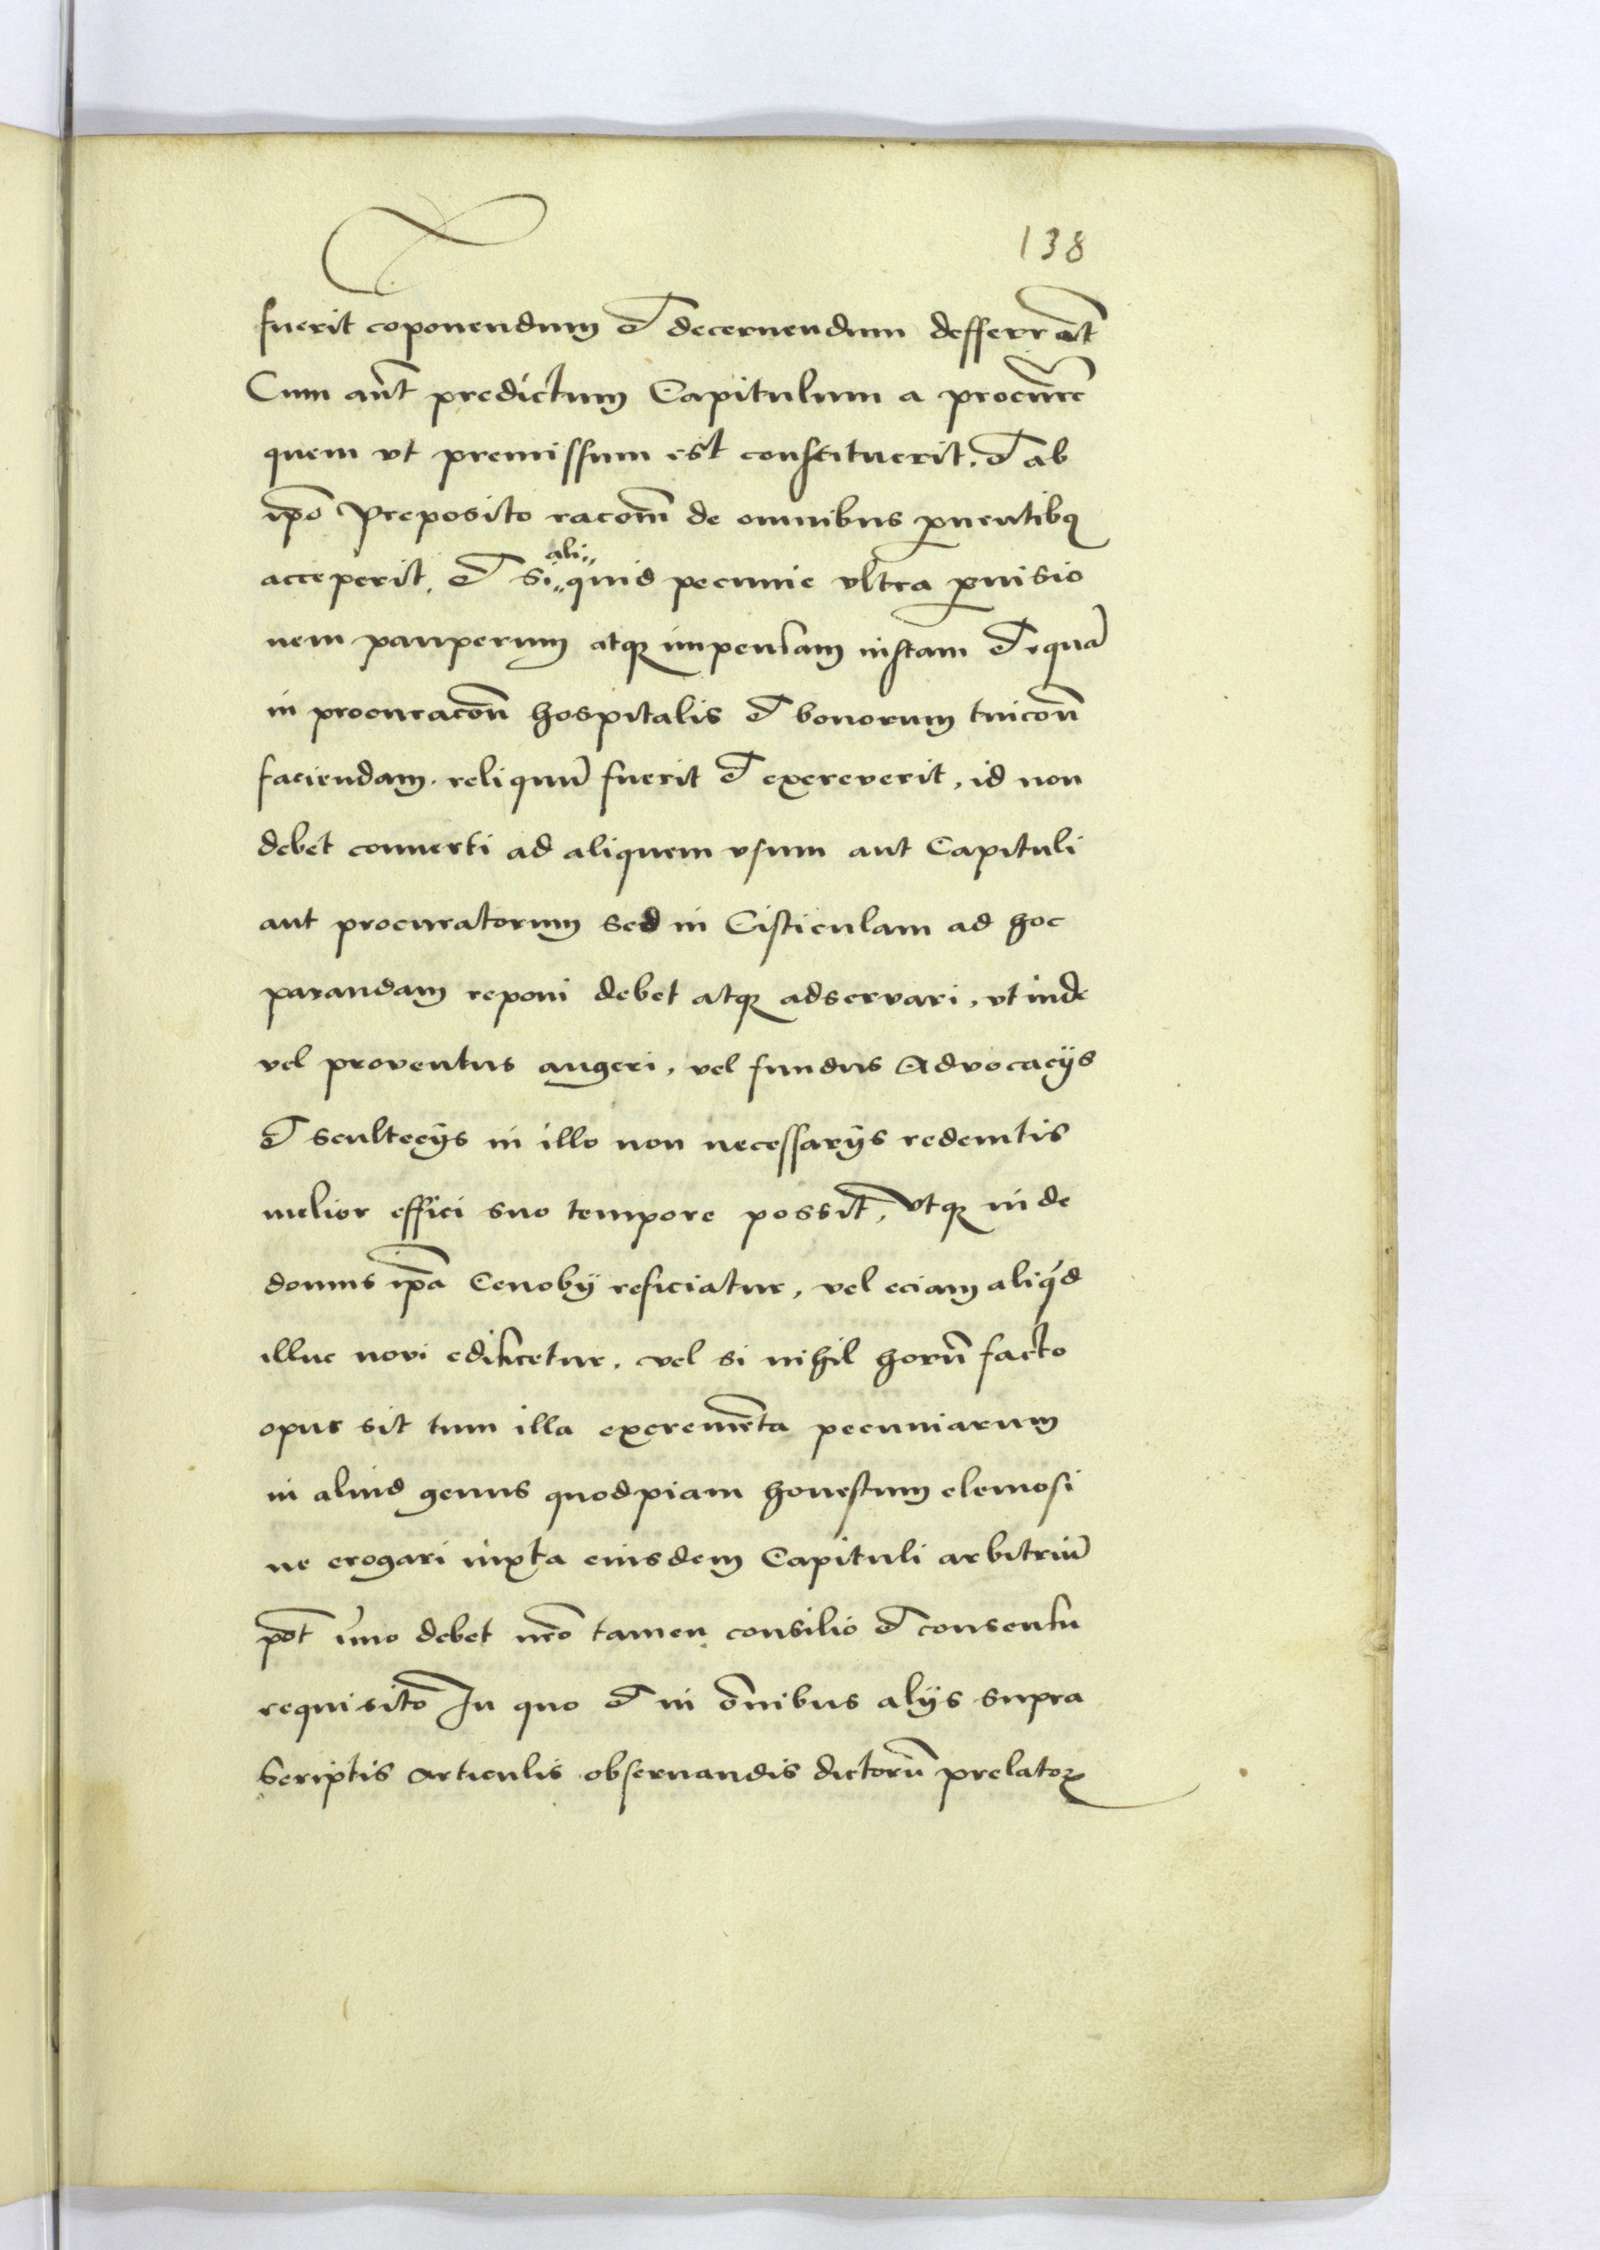 138
fuerit coponendum et decernendum defferrāt
Cum aūt predictum Capitulum a procur̄e
quem vt premissum est constituerit, et ab
ip̄o Preposito racōm de omnibus ꝓuentibꝯ
acceperit, et si aliquid pecunie vltra ꝓuisio
nem pauperum atqꝫ impensam iustam et equā
in procuracōn hospitalis et bonorum tuicōn
faciendam reliquū fuerit et excreverit, id non
debet conuerti ad aliquem vsum aut Capituli
aut procuratorum sed in Cisticulam ad hoc
parandam reponi debet atqꝫ adservari, vt inde
vel proventus augeri, vel fundus Advocacijs
et scultecijs in illo non necessarijs redemtis
melior effici suo tempore possit, vtqꝫ inde
domus ip̄a Cenobij reficiatur, vel eciam aliq́d
illuc novi edificetur, vel si nihil horū facto
opus sit tum illa excremēta pecuniarum
in aliud genus quodpiam honestum elemosi
ne erogari iuxta eiusdem Capituli arbitriū
pōt īmo debet nr̄o tamen consilio et consensu
requisito In quo et in ōnibus alijs supra
scriptis articulis obseruandis dictorū prelatoꝝ